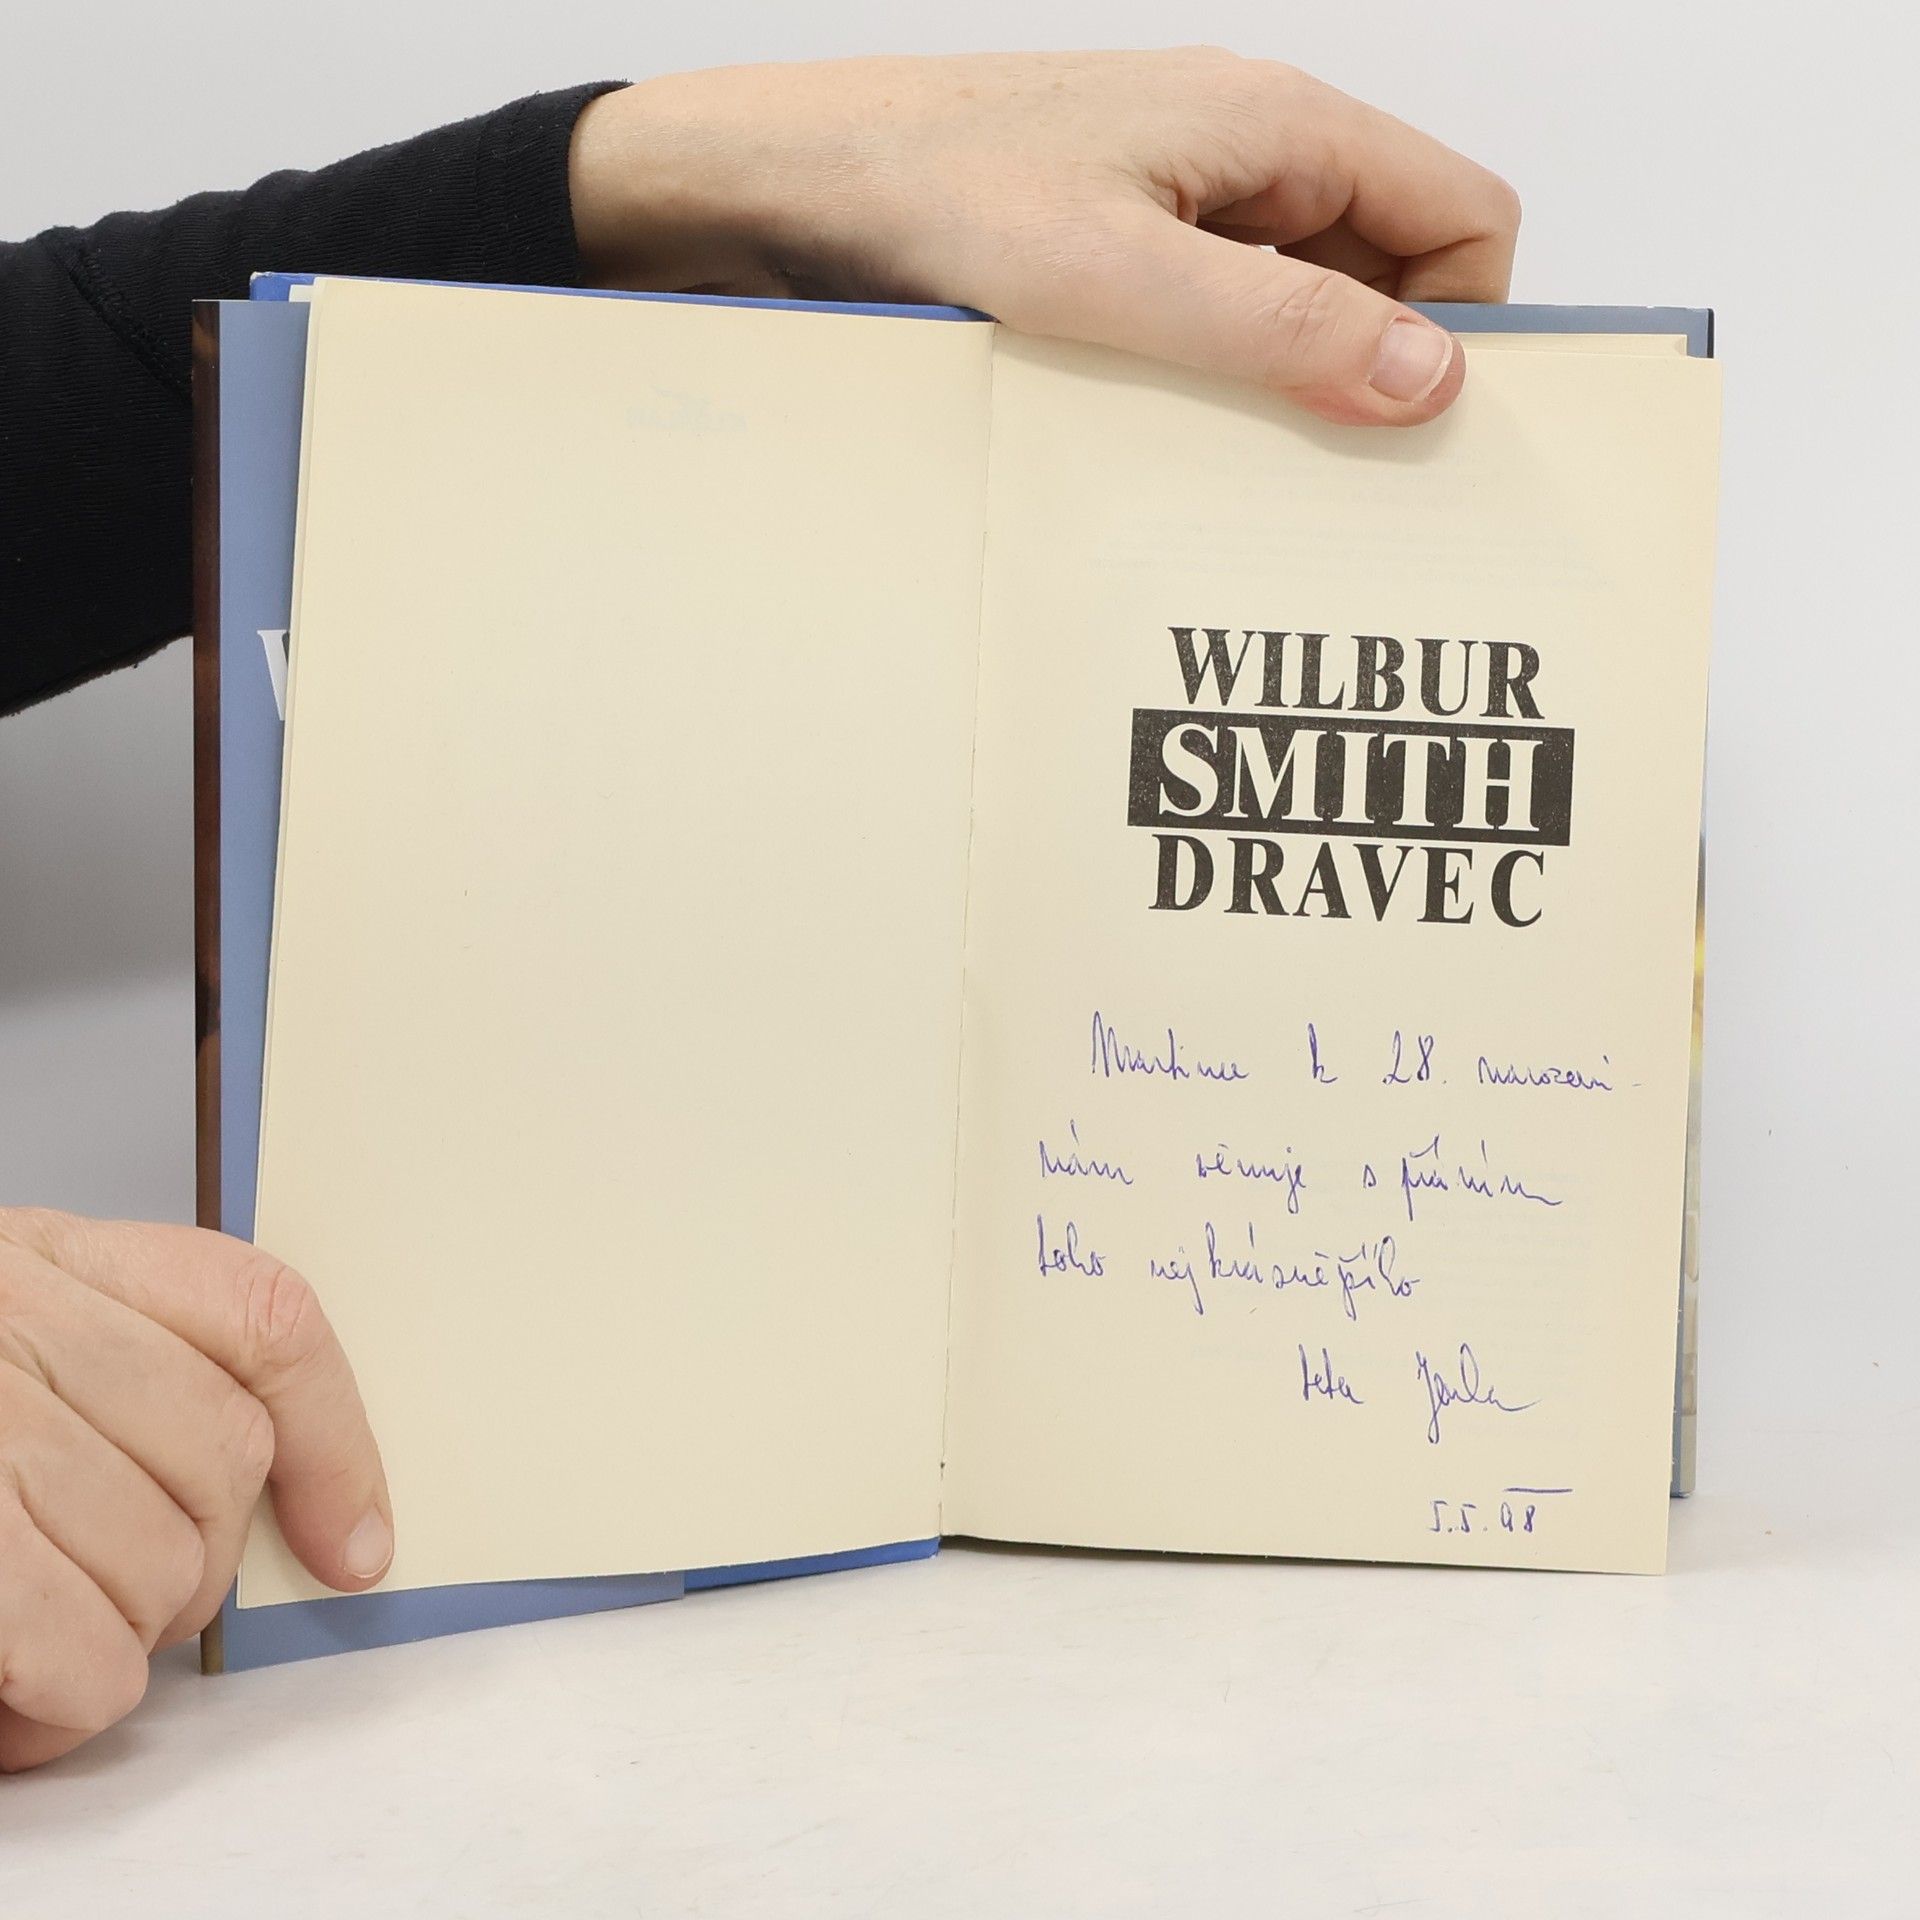 WILBUR
SMITH
DRAVEC
k 28. narozeni-
nám věnuje s přáním
toho nejkrásnějšího
teta Jarla
5.5.98